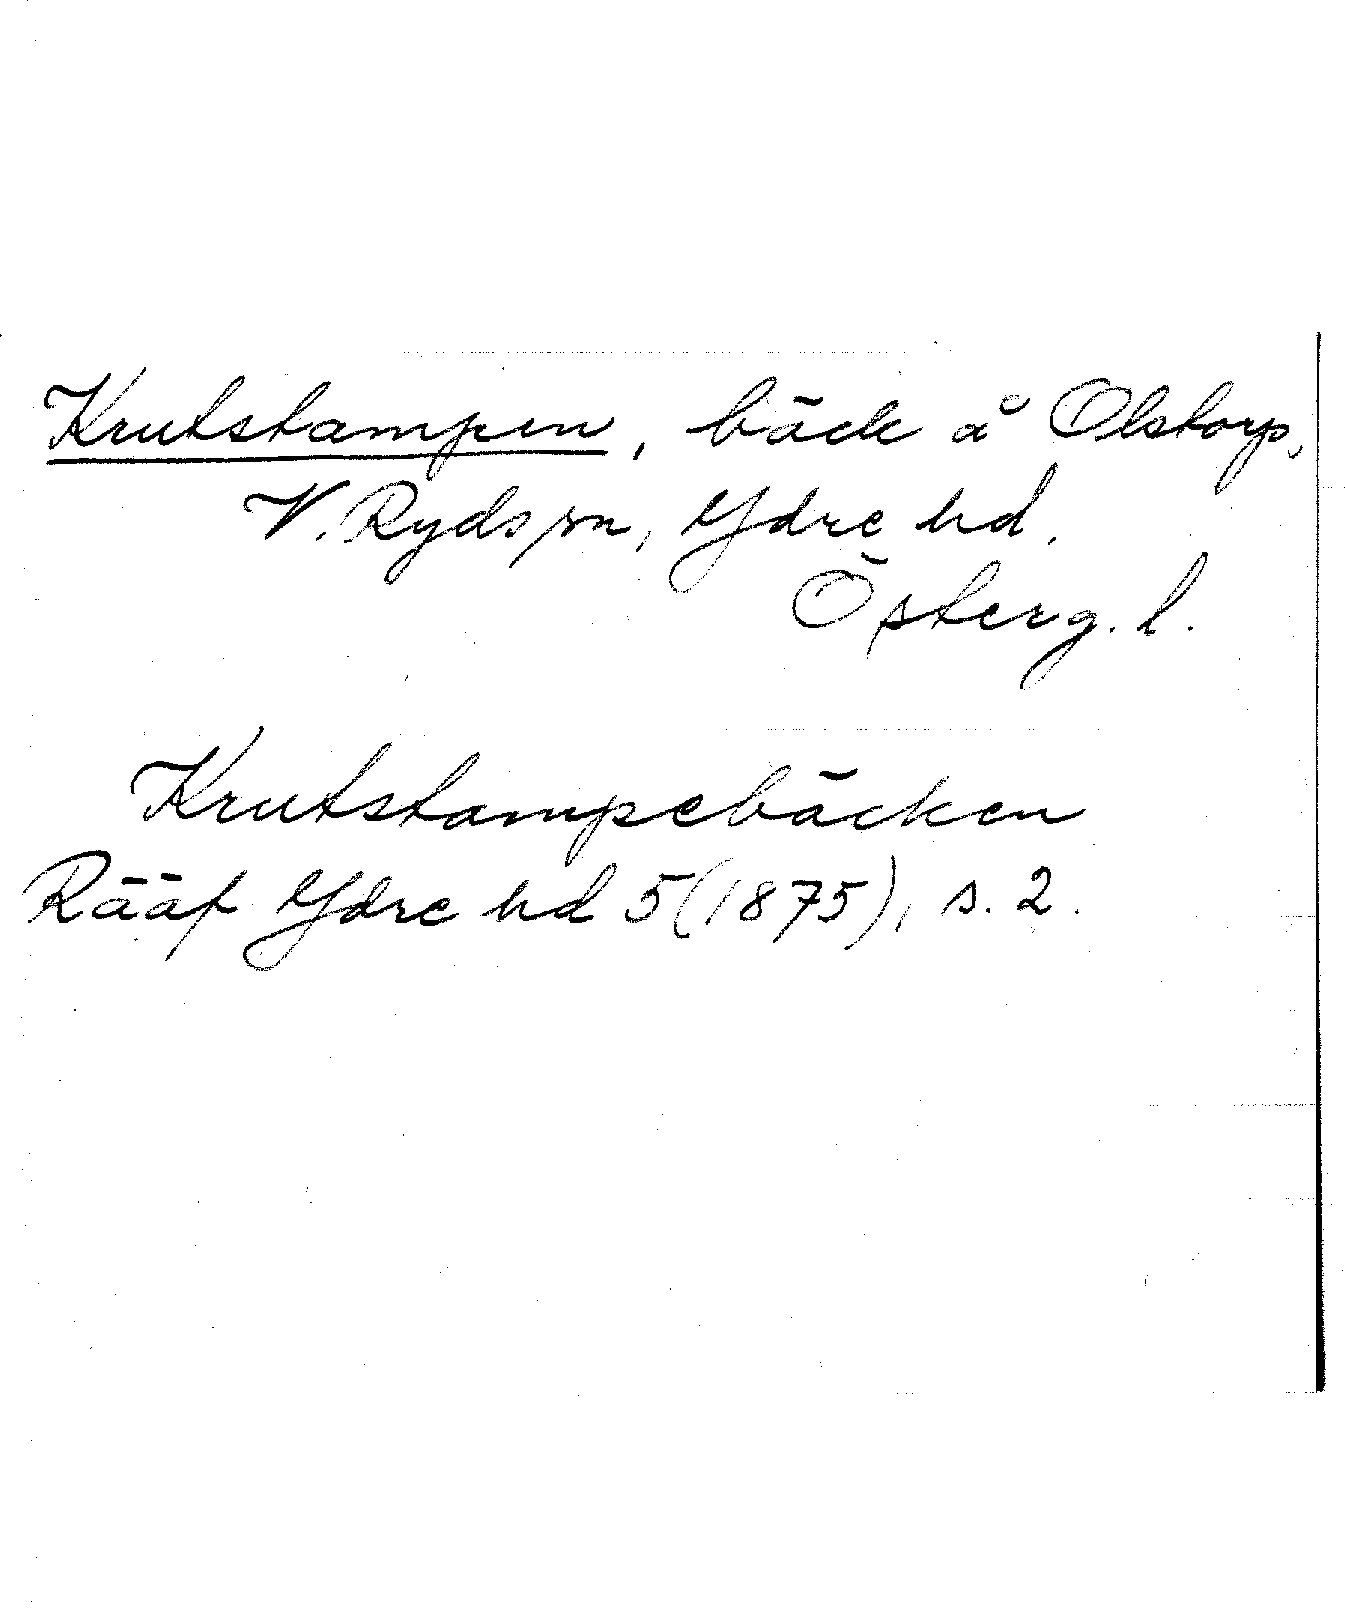 Krutstampen, bäck å Olstorp,
V. Ryds sn, Ydre hd,
Österg. l.
Krutstampebäcken
Rääf Ydre hd 5 (1875), s. 2.